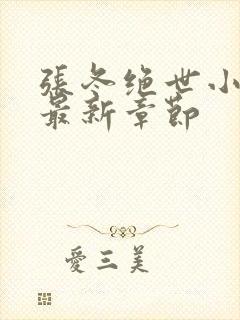 張冬绝世小
最新章節
愛三美